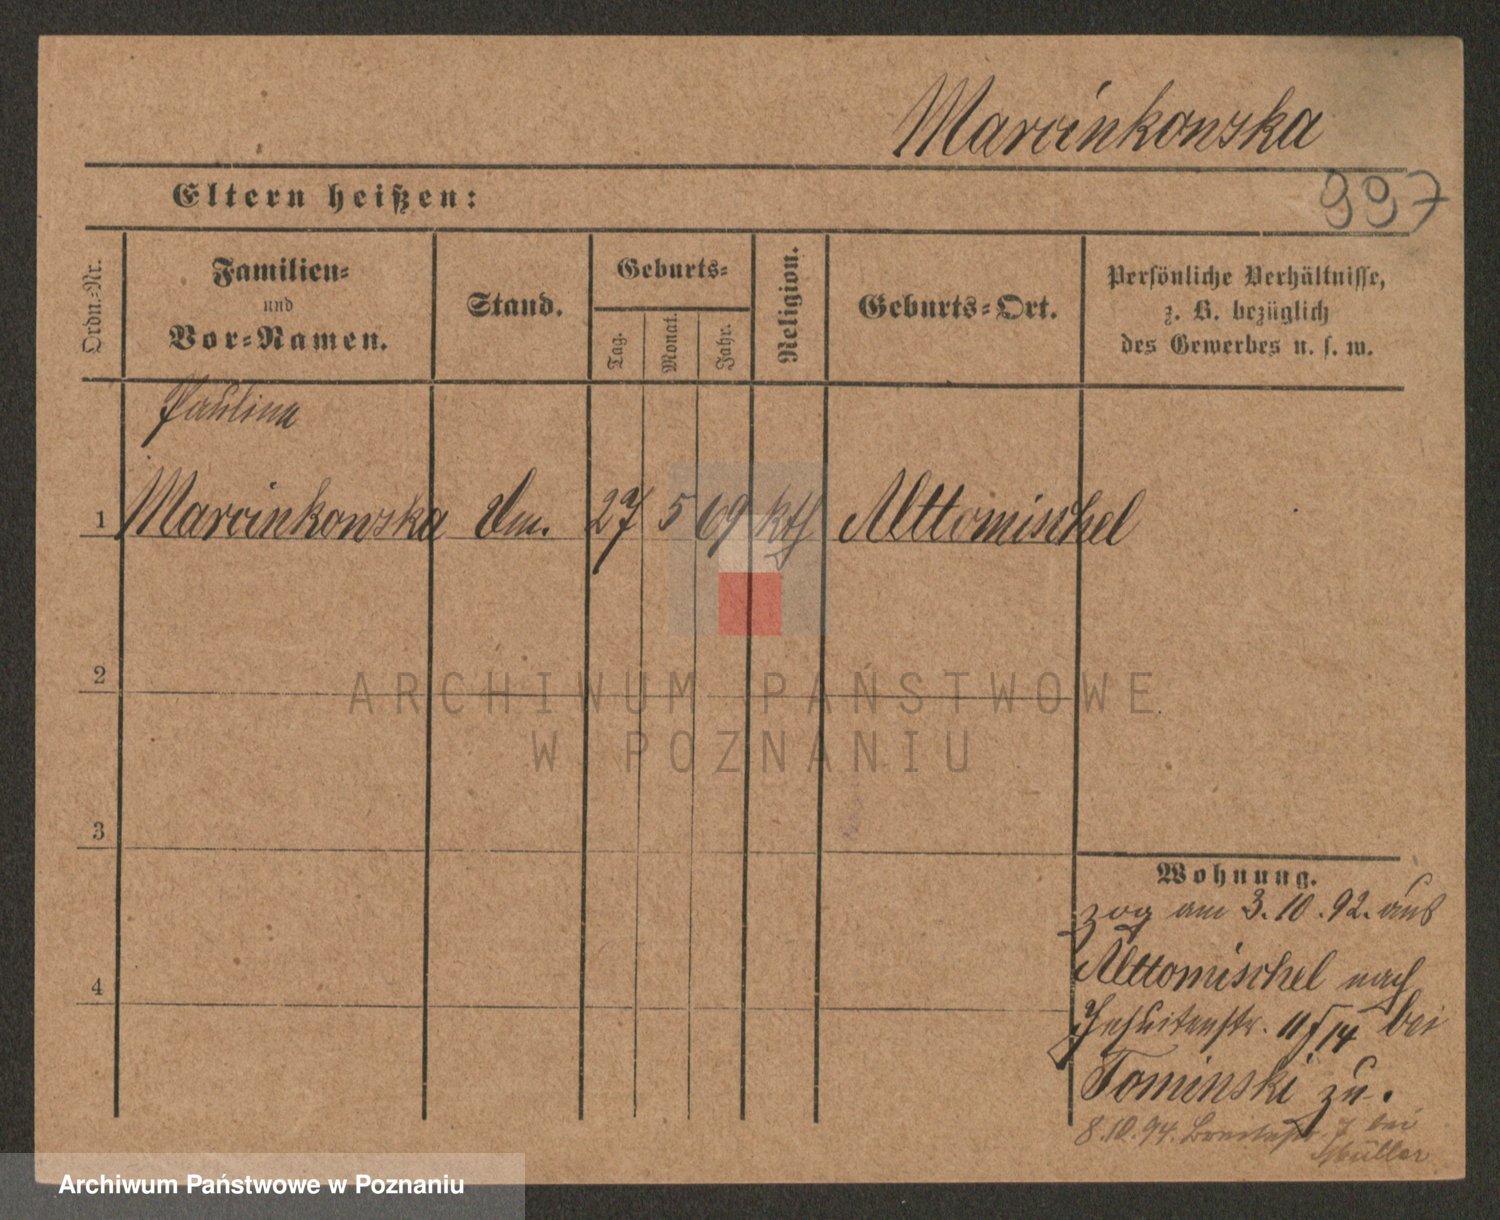 Marcinkowska
Eltern heißen:
997
Ordn.-Nr.
Familien-
und
Vor-Namen.
Stand.
Geburts-
Tag.
Monat.
Jahr.
Religion.
Geburts-Ort.
Persönliche Verhältnisse,
z. B. bezüglich
des Gewerbes u. s. w.
Paulina
1 Marcinkowska 27 5 69 kth Alttomischel
2
3
4
Wohnung.
zog am 3.10.92. aus
Alttomischel nach
Jesuitenstr. 11/14 bei
Tominski zu.
8.10.94. Breitestr. 7 bei
Müller
ARCHIWUM PAŃSTWOWE
W POZNANIU
Archiwum Państwowe w Poznaniu